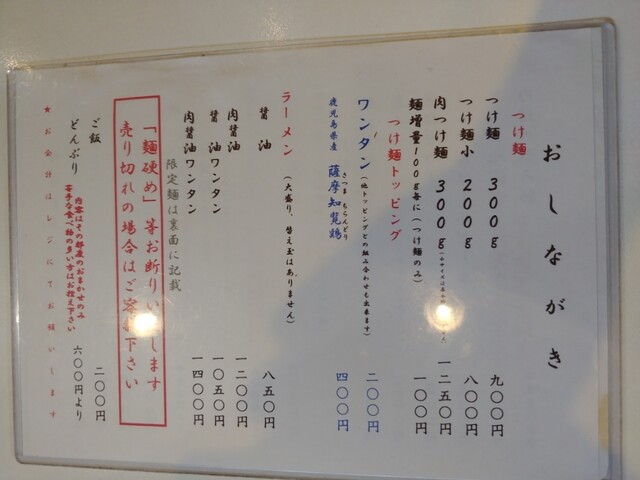 おしながき
つけ麺
つけ麺 300g 九〇〇円
つけ麺小 200g 八〇〇円
肉つけ麺 300g 一二五〇円
麺増量100g毎に(つけ麺のみ) 一〇〇円
つけ麺トッピング
ワンタン(他トッピングとの組み合わせも出来ます) 二〇〇円
鹿児島県産 薩摩知覧鶏 四〇〇円
さつま ちらんどり
ラーメン (大盛り、替え玉はありません)
醤油 八五〇円
肉醤油 一二〇〇円
醤油ワンタン 一〇五〇円
肉醤油ワンタン 一四〇〇円
限定麺は裏面に記載
「麺硬め」等お断りいたします
売り切れの場合はご容赦下さい
ご飯 二〇〇円
どんぶり 六〇〇円より
内容はその都度のおまかせのみ
苦手な食べ物の多い方はお控え下さい
★お会計はレジにてお願いします